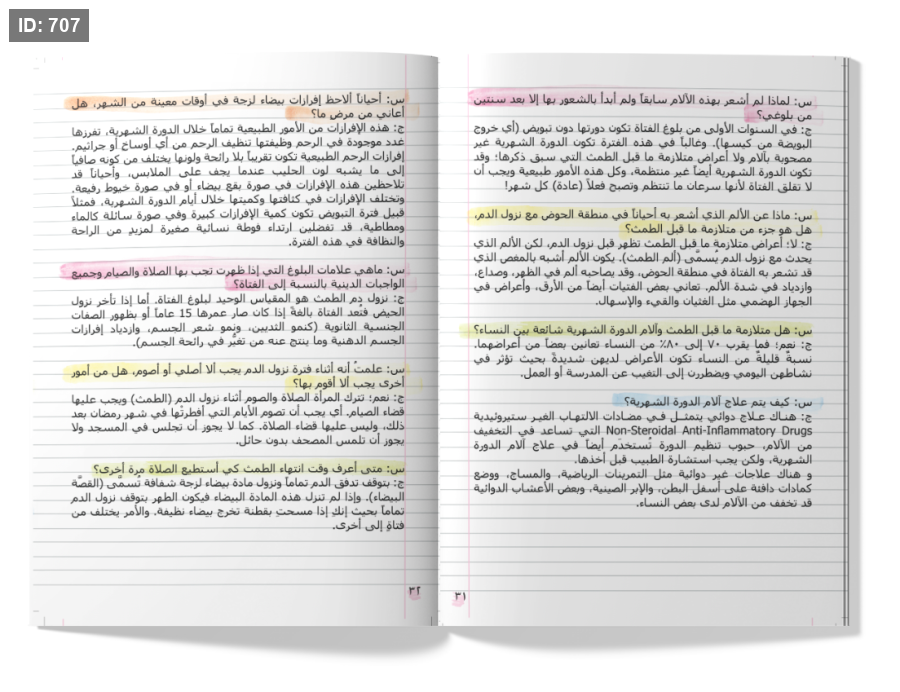 ID: 707
س: لماذا لم أشعر بهذه الآلام سابقاً ولم أبدأ بالشعور بها إلا بعد سنتين
من بلوغي؟
ج: في السنوات الأولى من بلوغ الفتاة تكون دورتها دون تبويض (أي خروج
البويضة من كيسها). وغالباً في هذه الفترة تكون الدورة الشهرية غير
مصحوبة بآلام ولا أعراض متلازمة ما قبل الطمث التي سبق ذكرها؛ وقد
تكون الدورة الشهرية أيضاً غير منتظمة، وكل هذه الأمور طبيعية ويجب أن
لا تقلق الفتاة لأنها سرعان ما تنتظم وتصبح فعلاً (عادة) كل شهر!
س: ماذا عن الألم الذي أشعر به أحياناً في منطقة الحوض مع نزول الدم،
هل هو جزء من متلازمة ما قبل الطمث؟
ج: لا؛ أعراض متلازمة ما قبل الطمث تظهر قبل نزول الدم، لكن الألم الذي
يحدث مع نزول الدم يُسمَّى (ألم الطمث). يكون الألم أشبه بالمغص الذي
قد تشعر به الفتاة في منطقة الحوض، وقد يصاحبه ألم في الظهر، وصداع،
وازدياد في شدة الألم. تعاني بعض الفتيات أيضاً من الأرق، وأعراض في
الجهاز الهضمي مثل الغثيان والقيء والإسهال.
س: هل متلازمة ما قبل الطمث وآلام الدورة الشهرية شائعة بين النساء؟
ج: نعم؛ فما يقرب ٧٠ إلى ٨٠٪ من النساء تعانين بعضاً من أعراضهما.
نسبةٌ قليلةٌ من النساء تكون الأعراض لديهن شديدةً بحيث تؤثر في
نشاطهن اليومي ويضطررن إلى التغيب عن المدرسة أو العمل.
س: كيف يتم علاج آلام الدورة الشهرية؟
ج: هناك علاج دوائي يتمثل في مضادات الالتهاب الغير ستيروئيدية
Non-Steroidal Anti-Inflammatory Drugs التي تساعد في التخفيف
من الآلام، حبوب تنظيم الدورة تُستخدَم أيضاً في علاج آلام الدورة
الشهرية، ولكن يجب استشارة الطبيب قبل أخذها.
و هناك علاجات غير دوائية مثل التمرينات الرياضية، والمساج، ووضع
كمادات دافئة على أسفل البطن، والإبر الصينية، وبعض الأعشاب الدوائية
قد تخفف من الآلام لدى بعض النساء.
٣١
س: أحياناً ألاحظ إفرازات بيضاء لزجة في أوقات معينة من الشهر، هل
أعاني من مرض ما؟
ج: هذه الإفرازات من الأمور الطبيعية تماماً خلال الدورة الشهرية، تفرزها
غدد موجودة في الرحم وظيفتها تنظيف الرحم من أي أوساخ أو جراثيم.
إفرازات الرحم الطبيعية تكون تقريباً بلا رائحة ولونها يختلف من كونه صافياً
إلى ما يشبه لون الحليب عندما يجف على الملابس، وأحياناً قد
تلاحظين هذه الإفرازات في صورة بقع بيضاء أو في صورة خيوط رفيعة.
وتختلف الإفرازات في كثافتها وكميتها خلال أيام الدورة الشهرية، فمثلاً
قبيل فترة التبويض تكون كمية الإفرازات كبيرة وفي صورة سائلة كالماء
ومطاطية، قد تفضلين ارتداء فوطة نسائية صغيرة لمزيدٍ من الراحة
والنظافة في هذه الفترة.
س: ماهي علامات البلوغ التي إذا ظهرت تجب بها الصلاة والصيام وجميع
الواجبات الدينية بالنسبة إلى الفتاة؟
ج: نزول دم الطمث هو المقياس الوحيد لبلوغ الفتاة. أما إذا تأخر نزول
الحيض فتعد الفتاة بالغةً إذا كان صار عمرها 15 عاماً أو بظهور الصفات
الجنسية الثانوية (كنمو الثديين، ونمو شعر الجسم، وازدياد إفرازات
الجسم الدهنية وما ينتج عنه من تغيُّر في رائحة الجسم).
س: علمتُ أنه أثناء فترة نزول الدم يجب ألا أصلي أو أصوم، هل من أمور
أخرى يجب ألا أقوم بها؟
ج: نعم؛ تترك المرأة الصلاة والصوم أثناء نزول الدم (الطمث) ويجب عليها
قضاء الصيام. أي يجب أن تصوم الأيام التي أفطرتْها في شهر رمضان بعد
ذلك، وليس عليها قضاء الصلاة. كما لا يجوز أن تجلس في المسجد ولا
يجوز أن تلمس المصحف بدون حائل.
س: متى أعرف وقت انتهاء الطمث كي أستطيع الصلاة مرة أخرى؟
ج: بتوقف تدفق الدم تماماً ونزول مادة بيضاء لزجة شفافة تُسمَّى (القصَّة
البيضاء). وإذا لم تنزل هذه المادة البيضاء فيكون الطهر بتوقف نزول الدم
تماماً بحيث إنكِ إذا مسحتِ بقطنة تخرج بيضاء نظيفة. والأمر يختلف من
فتاةٍ إلى أخرى.
٣٢